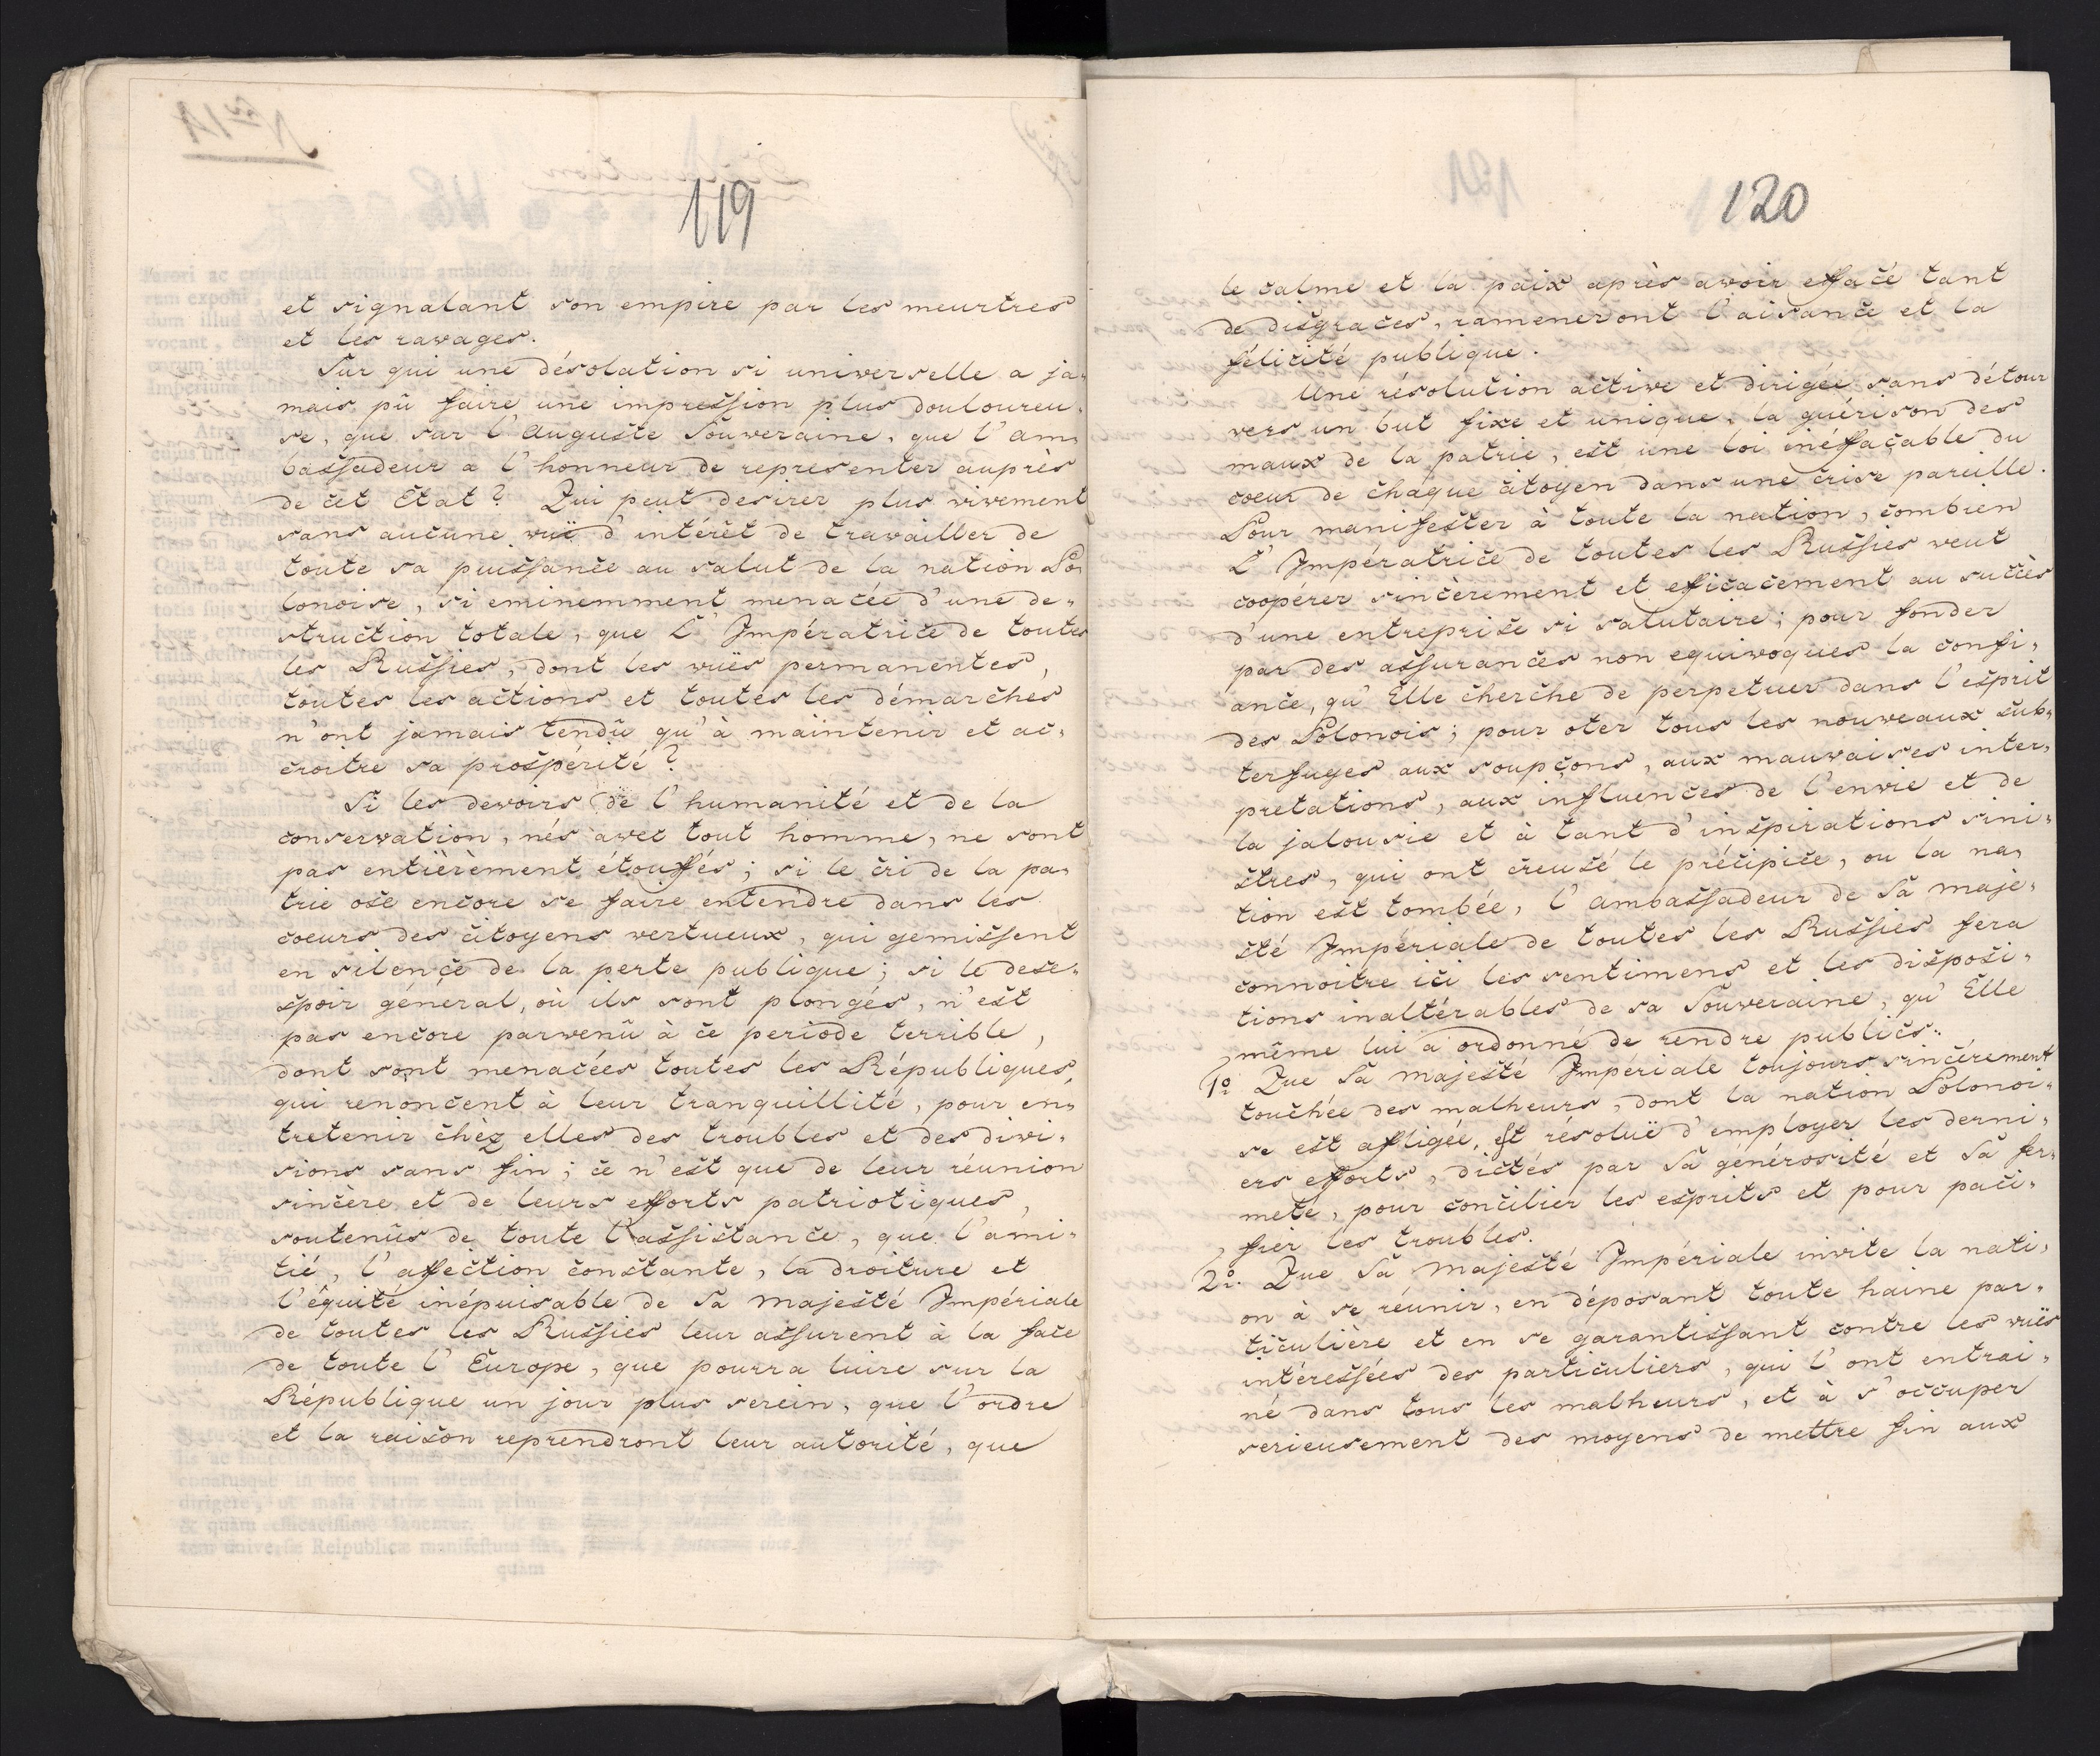 119
et signalant son empire par les meurtres
et les ravages.
Sur qui une désolation si universelle a ja-
mais pû faire une impression plus douloureu-
se, que sur l'auguste Souveraine, que l'am-
bassadeur a l'honneur de representer auprès
de cet Etat? Qui peut desirer plus vivement
sans aucune vuë d'intérêt de travailler de
toute sa puissance au salut de la nation Po-
lonoise, si eminemment menacée d'une de-
struction totale, que L'Impératrice de toutes
les Russies, dont les vuës permanentes,
toutes les actions et toutes les démarches
n'ont jamais tendû qu'à maintenir et ac-
croitre sa prospérité?
Si les devoirs de l'humanité et de la
conservation, nés avec tout homme, ne sont
pas entièrement étouffés; si le cri de la pa-
trie ose encore se faire entendre dans les
coeurs des citoyens vertueux, qui gemissent
en silence de la perte publique; si le dese-
spoir général, où ils sont plongés, n'est
pas encore parvenû à ce periode terrible,
dont sont menacées toutes les Républiques,
qui renoncent à leur tranquillité, pour en-
tretenir chèz elles des troubles et des divi-
sions sans fin; ce n'est que de leur réunion
sincère et de leurs efforts patriotiques,
soutenûs de toute l'assistance, que l'ami-
tié, l'affection constante, la droiture et
l'équité inépuisable de Sa Majesté Impériale
de toutes les Russies leur assurent à la face
de toute l'Europe, que pourra luire sur la
République un jour plus serein, que l'ordre
et la raison reprendront leur autorité, que
120
le calme et la paix après avoir effacé tant
de disgraces, rameneront l'aisance et la
félicité publique.
Une résolution active et dirigée sans détour
vers un but fixe et unique, la guérison des
maux de la patrie, est une loi inéffaçable du
coeur de chaque citoyen dans une crise pareille.
Pour manifester à toute la nation, combien
L'Impératrice de toutes les Russies veut
coopérer sincèrement et efficacement au succès
d'une entreprise si salutaire; pour fonder
par des assurances non equivoques la confi-
ance, qu'Elle cherche de perpetuer dans l'esprit
des Polonois; pour oter tous les nouveaux sub-
terfuges aux soupçons, aux mauvaises inter-
pretations, aux influences de l'envie et de
la jalousie et à tant d'inspirations sini-
stres, qui ont creusé le précipice, ou la na-
tion est tombée, l'ambassadeur de Sa Maje-
sté Impériale de toutes les Russies fera
connoitre ici les sentimens et les disposi-
tions inaltérables de sa Souveraine, qu'Elle
même lui a ordonné de rendre publics:
1o. Que Sa Majesté Impériale toujours sincérement
touchée des malheurs, dont la nation Polonoi-
se est affligée, est résoluë d'employer les derni-
ers efforts, dictés par Sa générosité et Sa fer-
meté, pour concilier les esprits et pour paci-
fier les troubles.
2o. Que Sa Majesté Impériale invite la nati-
on à se réunir, en déposant toute haine par-
ticulière et en se garantissant contre les vuës
intéressées des particuliers, qui l'ont entrai-
né dans tous les malheurs, et à s'occuper
serieusement des moyens de mettre fin aux